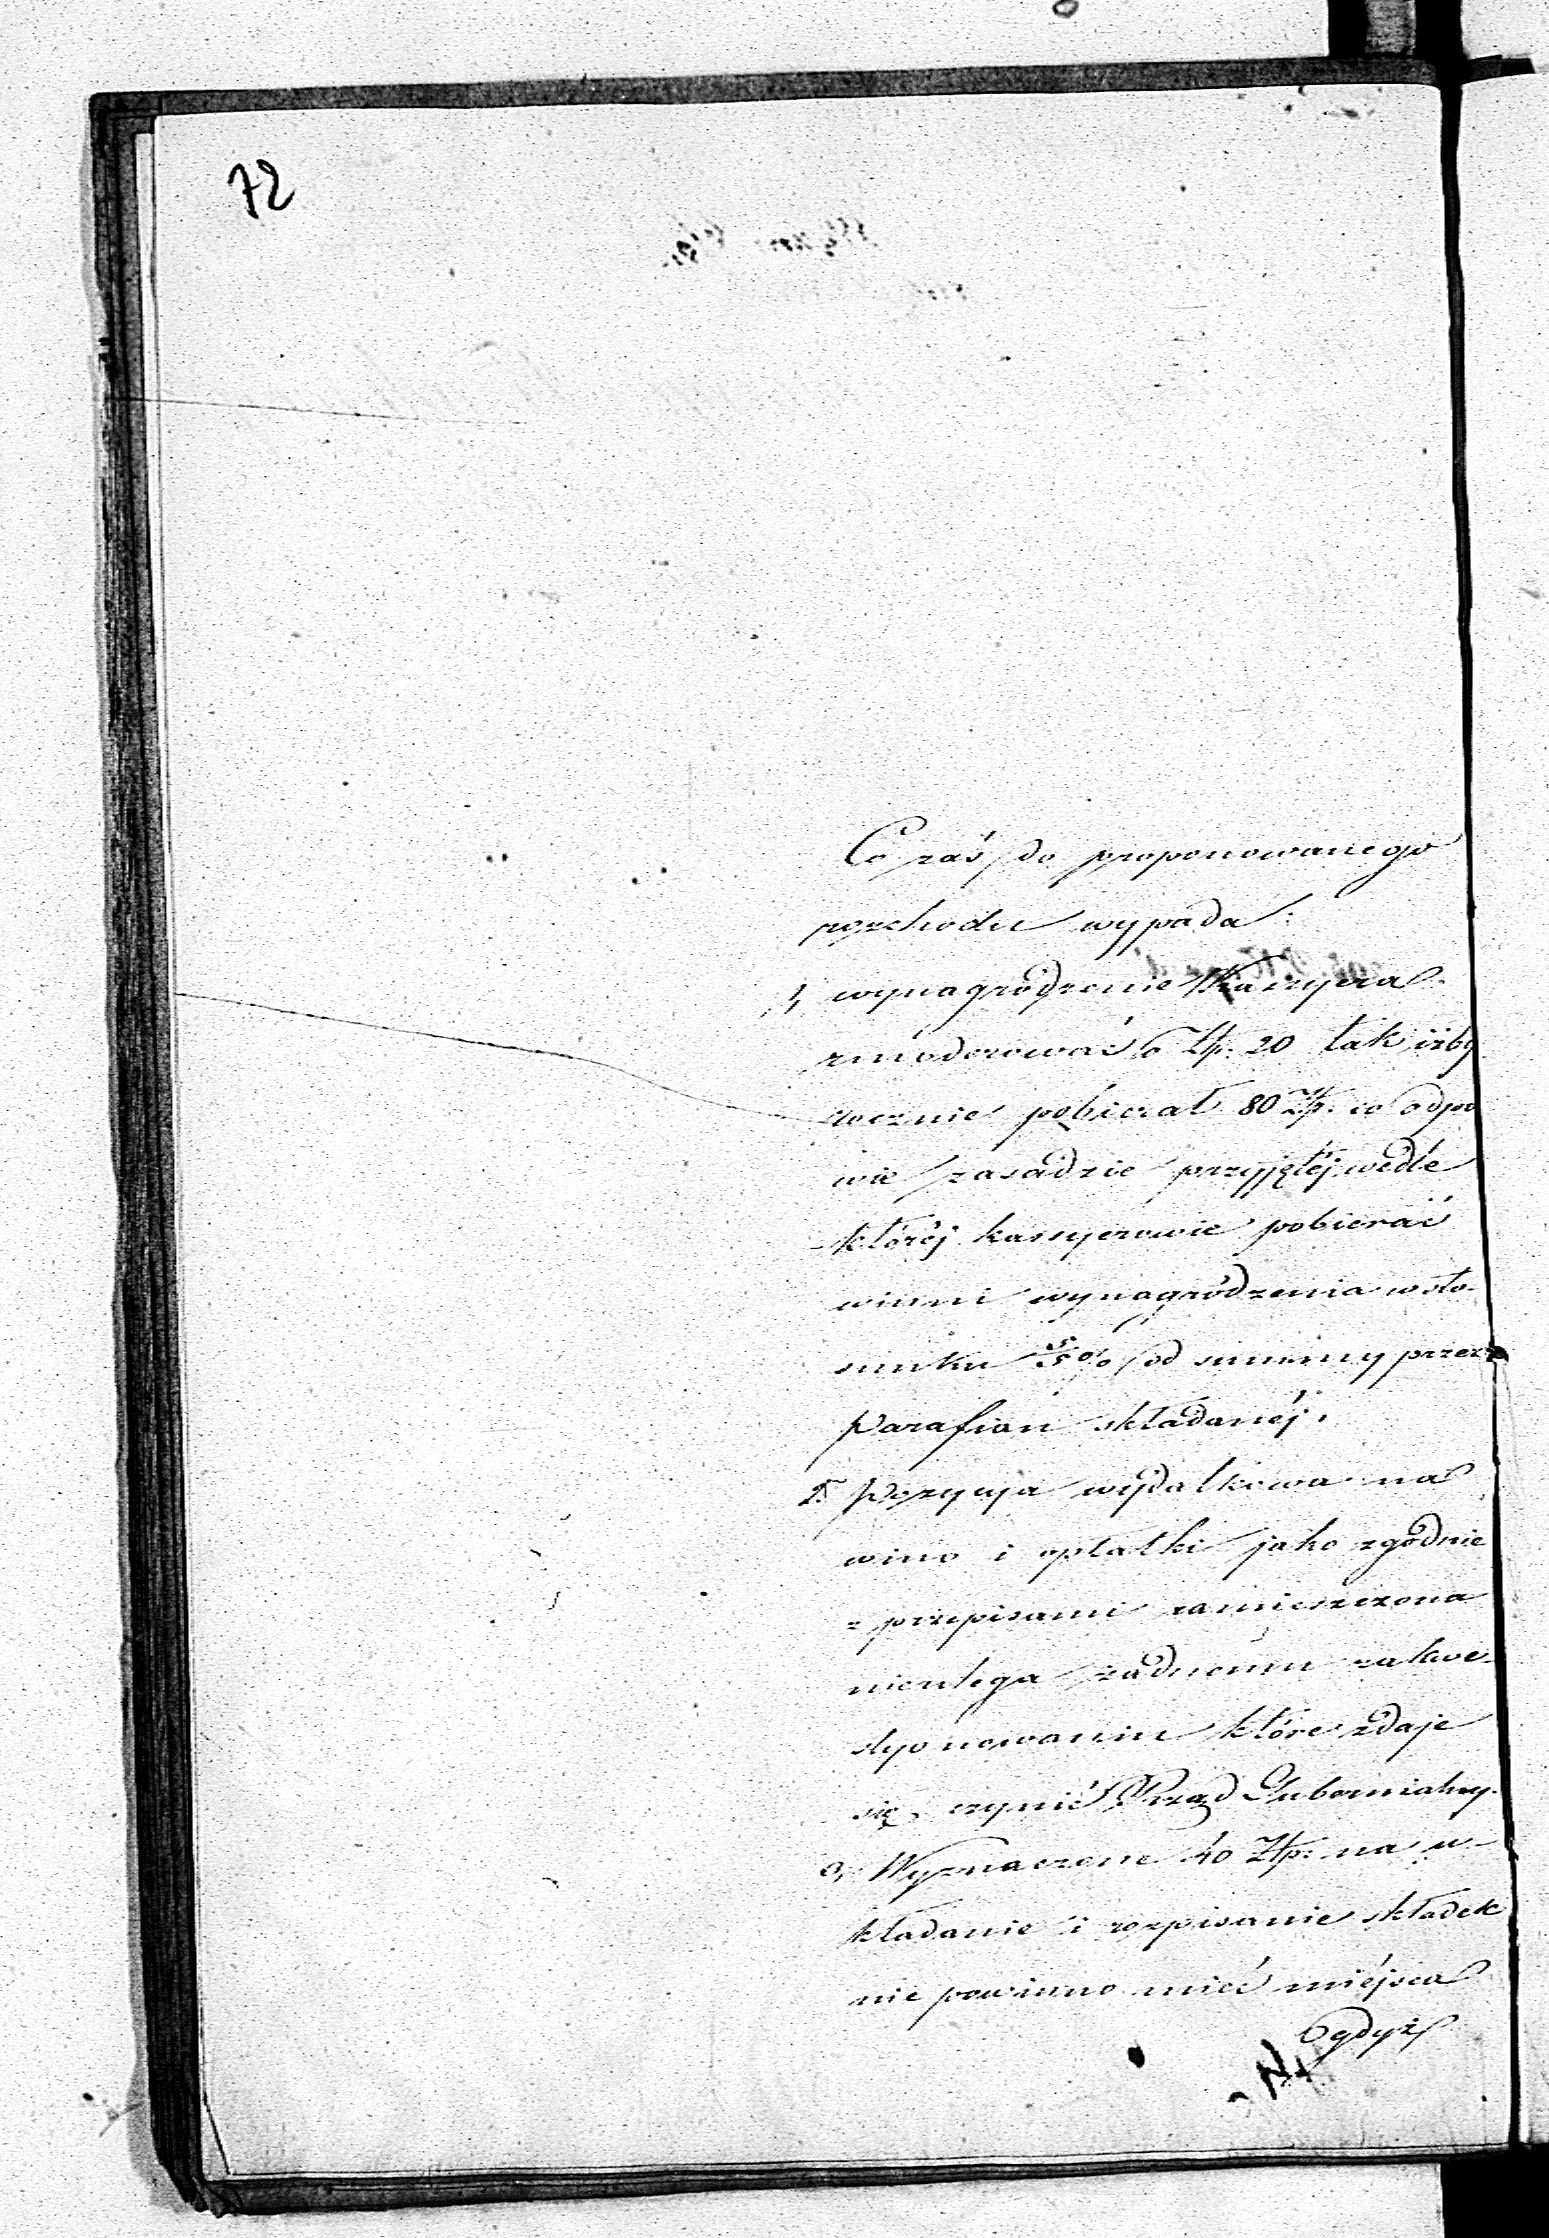 72
Co zaś do proponowanego
rozchodu wypada:
1, wynagrodzenie Kassyera
zmoderować o Złp. 20 tak iżby
rocznie pobierał 80 Złp. co odpo
wie zasadzie przyjętéj wedle
któréj kassyerowie pobierać
winni wynagrodzenia w sto-
sunku 5% od summy przez
Parafian składanéj.
2. Pozycyja wydatkowa na
wino i opłatki jako zgodnie
z przepisami zamieszczona
nieulega żadnemu zakwe-
styonowaniu które zdaje
się czynić Rząd Gubernialny.
3, Wyznaczone 40 Złp. na u-
kładanie i rozpisanie składek
nie powinno mieć miéjsca
gdyż